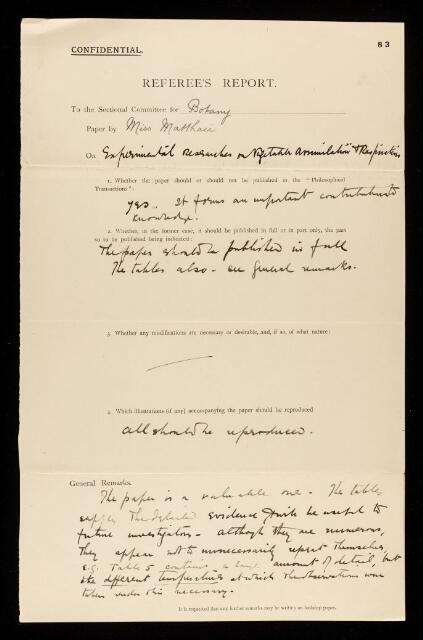 CONFIDENTIAL.
83
REFEREE'S REPORT.
To the Sectional Committee for Botany
Paper by Miss Matthaei
On Experimental Researches on Vegetable Assimilation & Respiration
1. Whether the paper should or should not be published in the "Philosophical
Transactions":
Yes. It forms an important contribution to
knowledge.
2. Whether, in the former case, it should be published in full or in part only, the part
so to be published being indicated:
The paper should be published in full
The tables also - see general remarks.
3. Whether any modifications are necessary or desirable, and, if so, of what nature:
4. Which illustrations (if any) accompanying the paper should be reproduced
All should be reproduced.
General Remarks.
The paper is a valuable one. The tables
supply the detailed evidence & will be useful to
future investigators - although they are numerous,
they appear not to unnecessarily repeat themselves,
e.g. Table 5 contains a large amount of detail, but
the different temperatures at which the observations were
taken render this necessary.
It is requested that any further remarks may be written on foolscap paper.